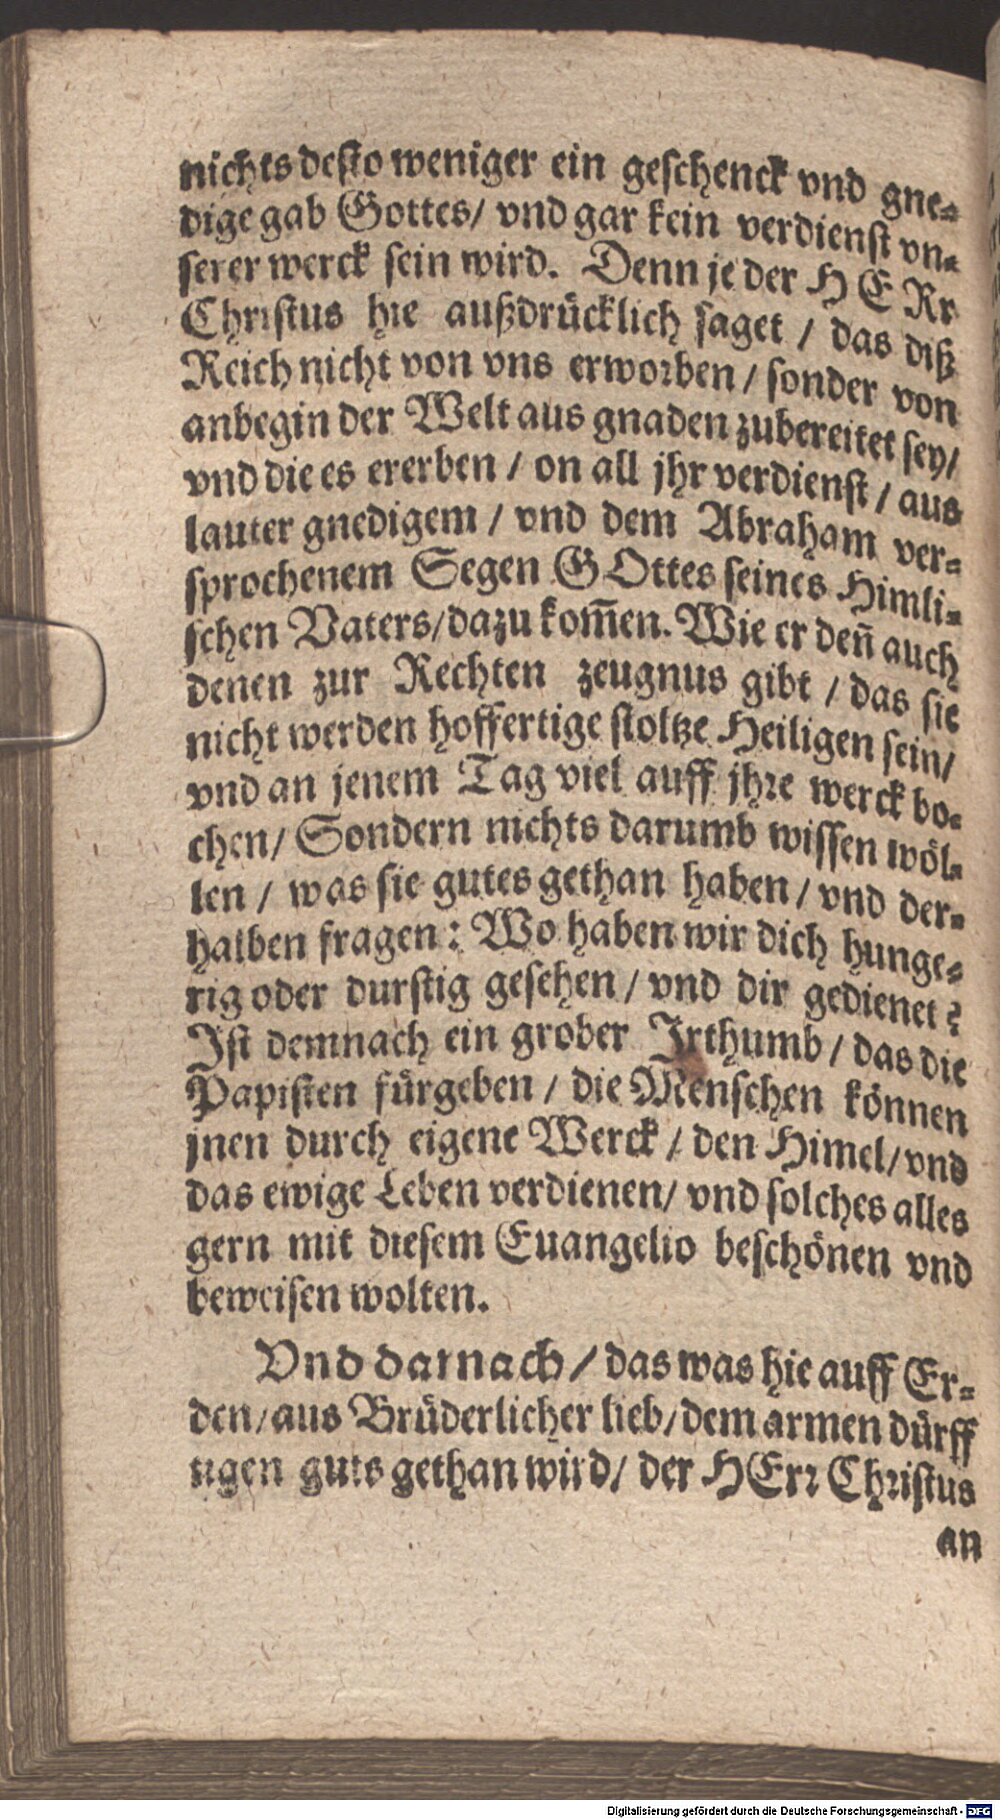 nichts desto weniger ein geschenck vnd gne⸗
dige gab Gottes/ vnd gar kein verdienst vn⸗
serer werck sein wird. Denn je der HERr
Christus hie außdrücklich saget / das diß
Reich nicht von vns erworben / sonder von
anbegin der Welt aus gnaden zubereitet sey/
vnd die es ererben / on all jhr verdienst / aus
lauter gnedigem / vnd dem Abraham ver⸗
sprochenem Segen GOttes seines Himli⸗
schen Vaters/dazu kom̄en. Wie er den̄ auch
denen zur Rechten zeugnus gibt / das sie
nicht werden hoffertige stoltze Heiligen sein/
vnd an jenem Tag viel auff jhre werck bo⸗
chen/ Sondern nichts darumb wissen wöl⸗
len / was sie gutes gethan haben / vnd der⸗
halben fragen: Wo haben wir dich hunge⸗
rig oder durstig gesehen / vnd dir gedienet?
Ist demnach ein grober Irthumb / das die
Papisten fürgeben / die Menschen können
jnen durch eigene Werck / den Himel/ vnd
das ewige Leben verdienen/ vnd solches alles
gern mit diesem Euangelio beschönen vnd
beweisen wolten.
Vnd darnach / das was hie auff Er⸗
den/aus Brüderlicher lieb/dem armen dürff
tigen guts gethan wird/ der HErr Christus
an
Digitalisierung gefördert durch die Deutsche Forschungsgemeinschaft - DFG